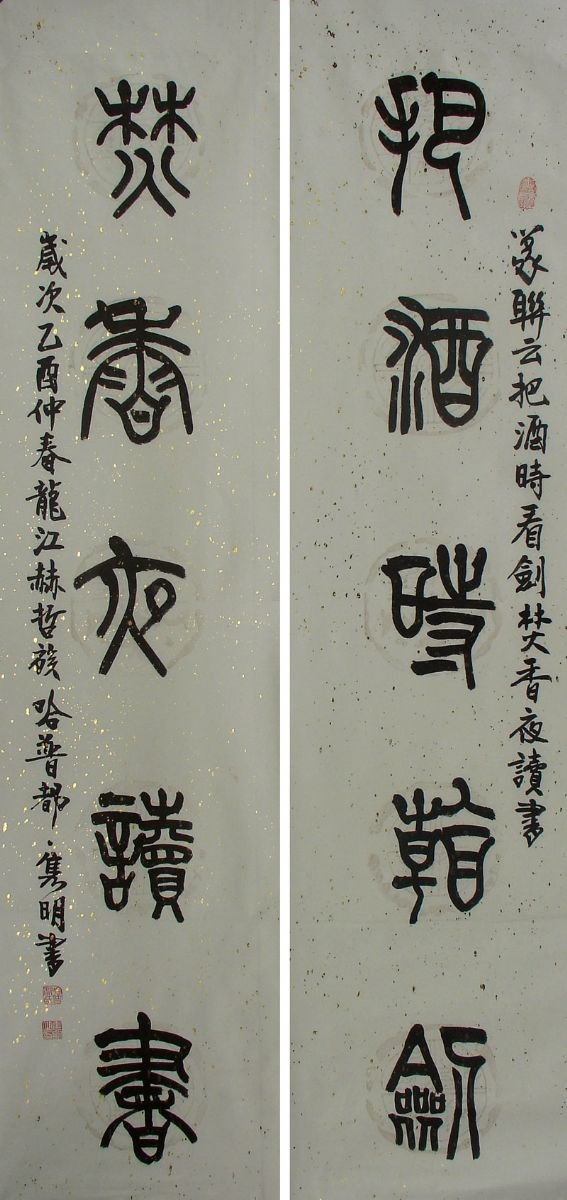 篆聯云把酒時看劍焚香夜讀書
把酒時看劍
焚香夜讀書
歲次乙酉仲春龍江赫哲族哈普都·隽明書